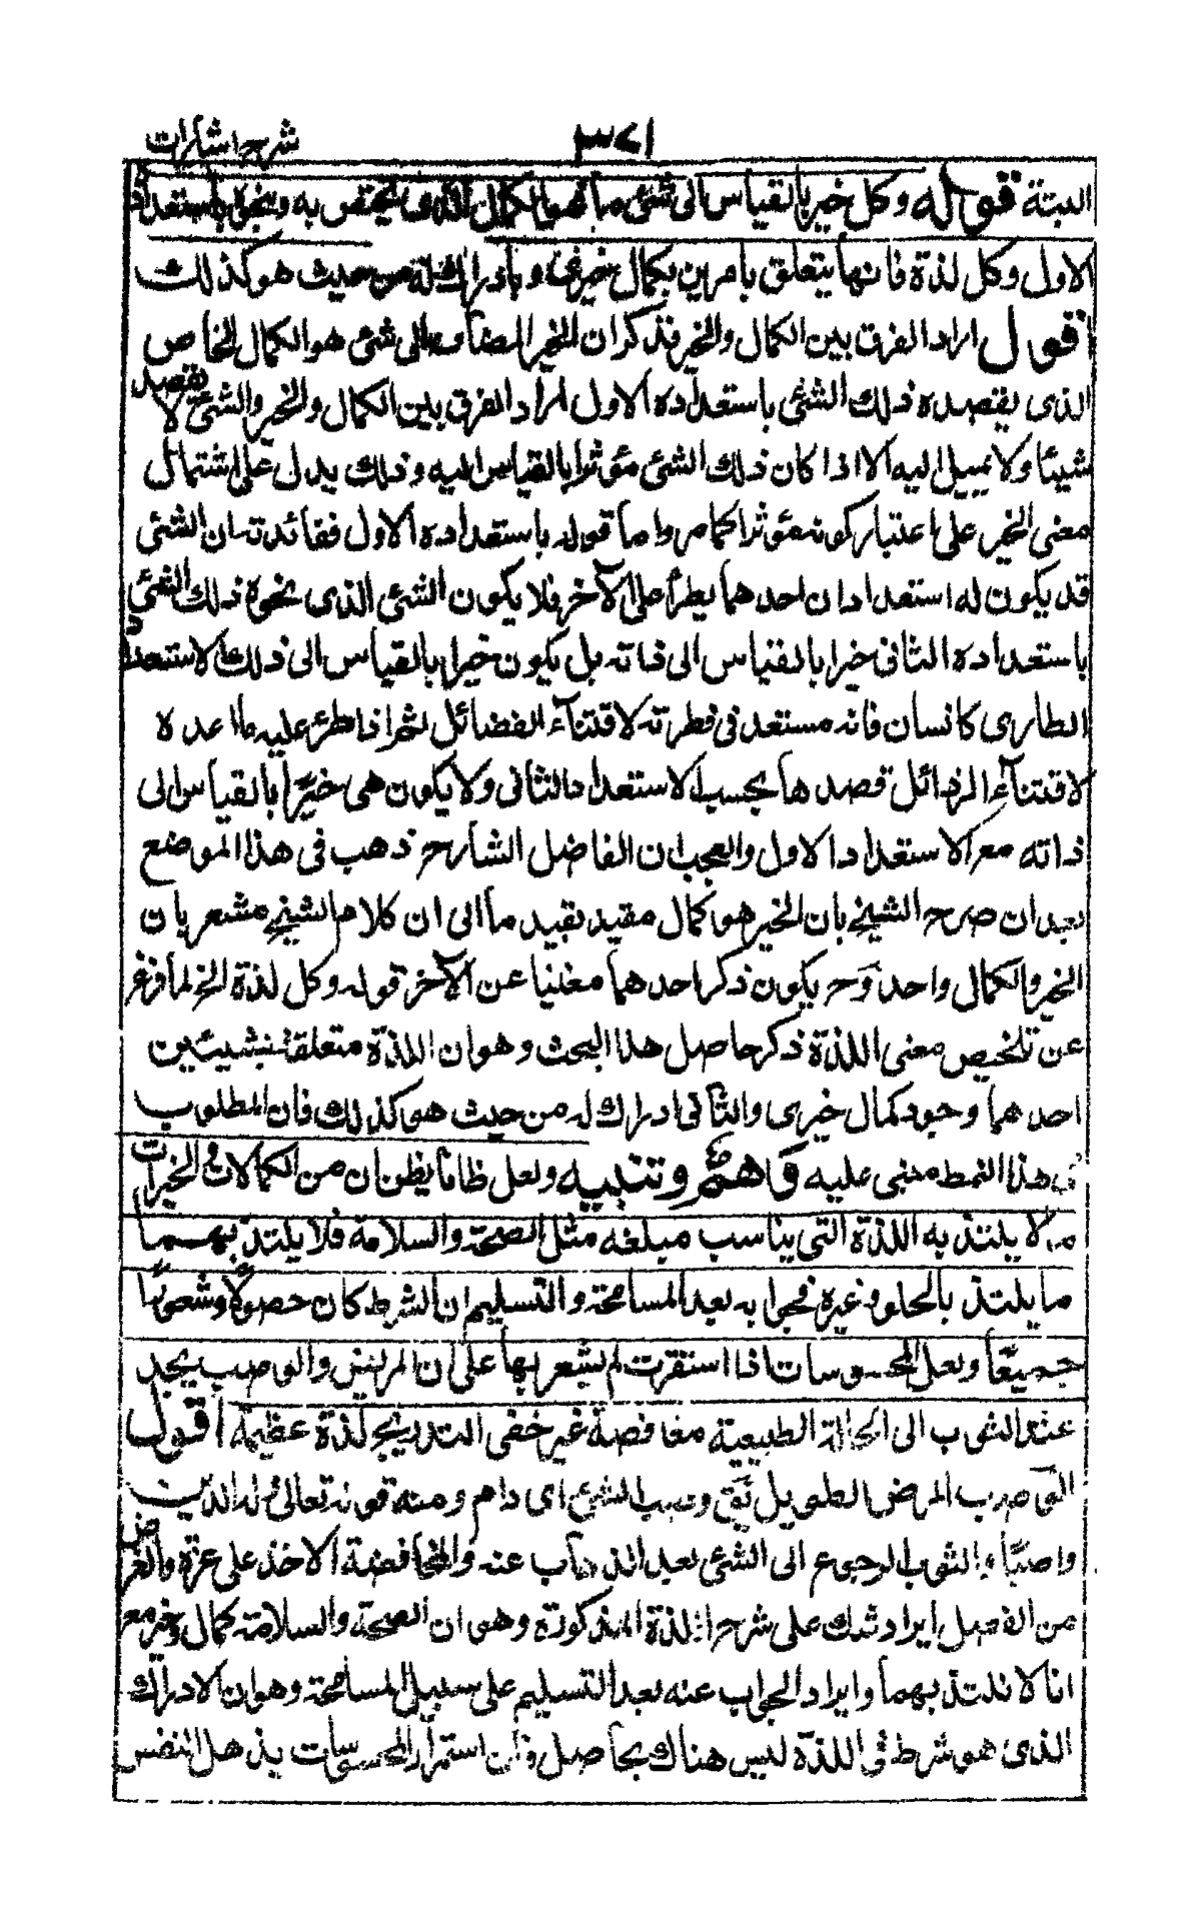 شرح اشارات
٣٧١
البتة قوله وكل خير بالقياس الى شئ ما فهو الكمال الذى يختص به وينحوه باستعداده
الاول وكل لذة فانها يتعلق بامرين بكمال خيرى وبادراك له من حيث هو كذلك
اقول اراد الفرق بين الكمال والخير فذكر ان الخير المضاف الى شئ هو الكمال الخاص
الذى يقصده ذلك الشئ باستعداده الاول اراد الفرق بين الكمال والخير والشئ لا يقصد
شيئا ولا يميل اليه الا اذا كان ذلك الشئ مؤثرا بالقياس اليه وذلك يدل على اشتمال
معنى الخير على اعتبار كونه مؤثرا كما مر واما قوله باستعداده الاول ففائدته ان الشئ
قد يكون له استعدادان احدهما يطرأ على الآخر فلا يكون الشئ الذى ينحوه ذلك الشئ
باستعداده الثانى خيرا بالقياس الى ذاته بل يكون خيرا بالقياس الى ذلك الاستعداد
الطارى كانسان فانه مستعد فى فطرته لاقتناء الفضائل ثم اذا طرئ عليه ما اعده
لاقتناء الرذائل قصدها بحسب الاستعداد الثانى ولا يكون هى خيرًا بالقياس الى
ذاته مع الاستعداد الاول والعجب ان الفاضل الشارح ذهب فى هذا الموضع
بعد ان صرح الشيخ بان الخير هو كمال مقيد بقيد ما الى ان كلام الشيخ مشعر بان
الخير والكمال واحد وح يكون ذكر احدهما مغنيا عن الآخر قوله وكل لذة الخ لما فرغ
عن تلخيص معنى اللذة ذكر حاصل هذا البحث وهو ان اللذة متعلقة بشيئين
احدهما وجود كمال خيرى والثانى ادراك له من حيث هو كذلك فان المطلوب
فى هذا النمط مبنى عليه وهم وتنبيه ولعل ظانا يظن ان من الكمالات والخيرات
ما لا يلتذ به اللذة التى يناسب مبلغه مثل الصحة والسلامة فلا يلتذ بهما
ما يلتذ بالحلو وغيره فجوابه بعد المسامحة والتسليم ان الشرط كان حصولا وشعورًا
جميعًا ولعل المحسوسات اذا استقرت لم يشعر بها على ان المريض والوصب يجد
عند الثوب الى الحالة الطبيعية مغافصة غير خفى التدريج لذة عظيمة اقول
الوصب المرض الطويل يق وصب الشئ اى دام ومنه قوله تعالى وله الدين
واصبًا والثوب الرجوع الى الشئ بعد الذهاب عنه والمغافصة الاخذ على غرة والغرض
من الفصل ايراد شك على شرح اللذة المذكورة وهو ان الصحة والسلامة كمال وخير مع
انا لا نلتذ بهما وايراد الجواب عنه بعد التسليم على سبيل المسامحة وهو ان الادراك
الذى هو شرط فى اللذة ليس هناك بحاصل فان استمرار المحسوسات يذهل النفس